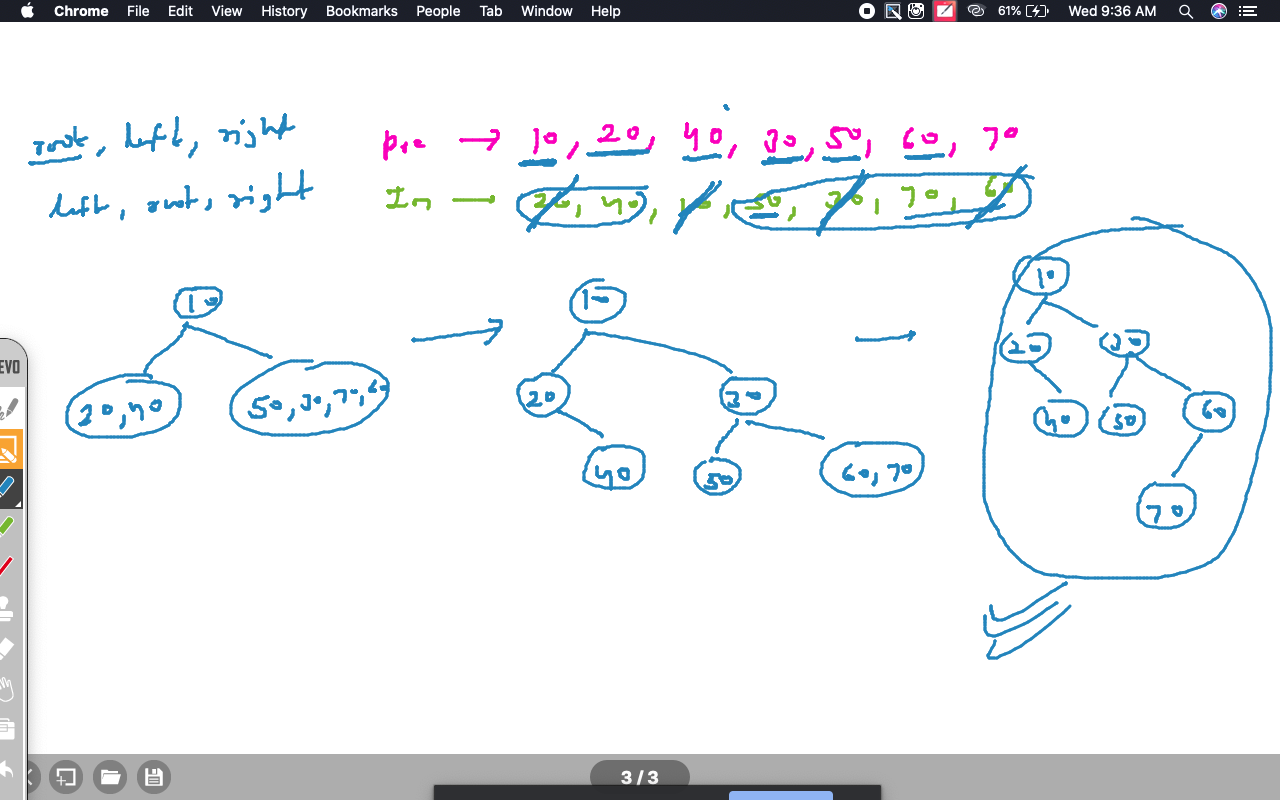 Chrome File Edit View History Bookmarks People Tab Window Help 61% Wed 9:36 AM
root, left, right
Pre → 10, 20, 40, 30, 50, 60, 70
left, root, right
In → 20, 40, 10, 50, 30, 70, 60
10
20, 40
50, 30, 70, 60
→
10
20
30
40
50
60, 70
→
10
20
30
40
50
60
70
EVO
3 / 3